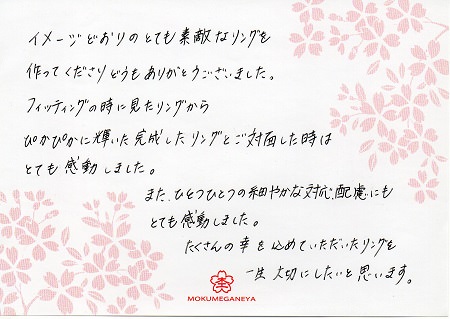 イメージどおりのとても素敵なリングを
作ってくださりどうもありがとうございました。
フィッティングの時に見たリングから
ぴかぴかに輝いた完成したリングとご対面した時は
とても感動しました。
また、ひとつひとつの細やかな対応、配慮にも
とても感動しました。
たくさんの幸を込めていただいたリングを
一生大切にしたいと思います。
MOKUMEGANEYA